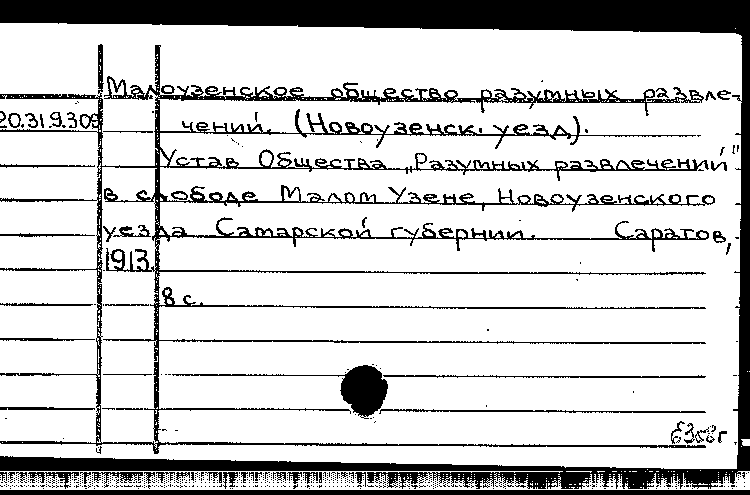 Малоузенское общество разумных развле-
20.31.9.309 чений. (Новоузенск. уезд).
Устав Общества „Разумных развлечений"
в слободе Малом Узене, Новоузенского
уезда Самарской губернии. Саратов,
1913.
8 с.